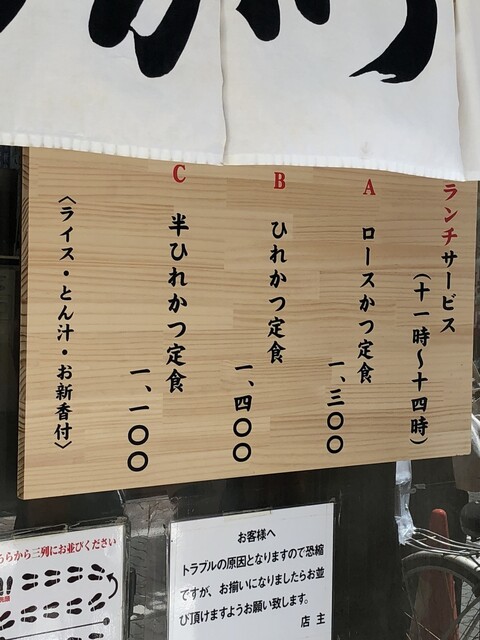 ランチサービス
(十一時〜十四時)
A
ロースかつ定食
一、三〇〇
B
ひれかつ定食
一、四〇〇
C
半ひれかつ定食
一、一〇〇
〈ライス・とん汁・お新香付〉
ちらから三列にお並びください
お客様へ
トラブルの原因となりますので恐縮
ですが、お揃いになりましたらお並
び頂けますようお願い致します。
店 主